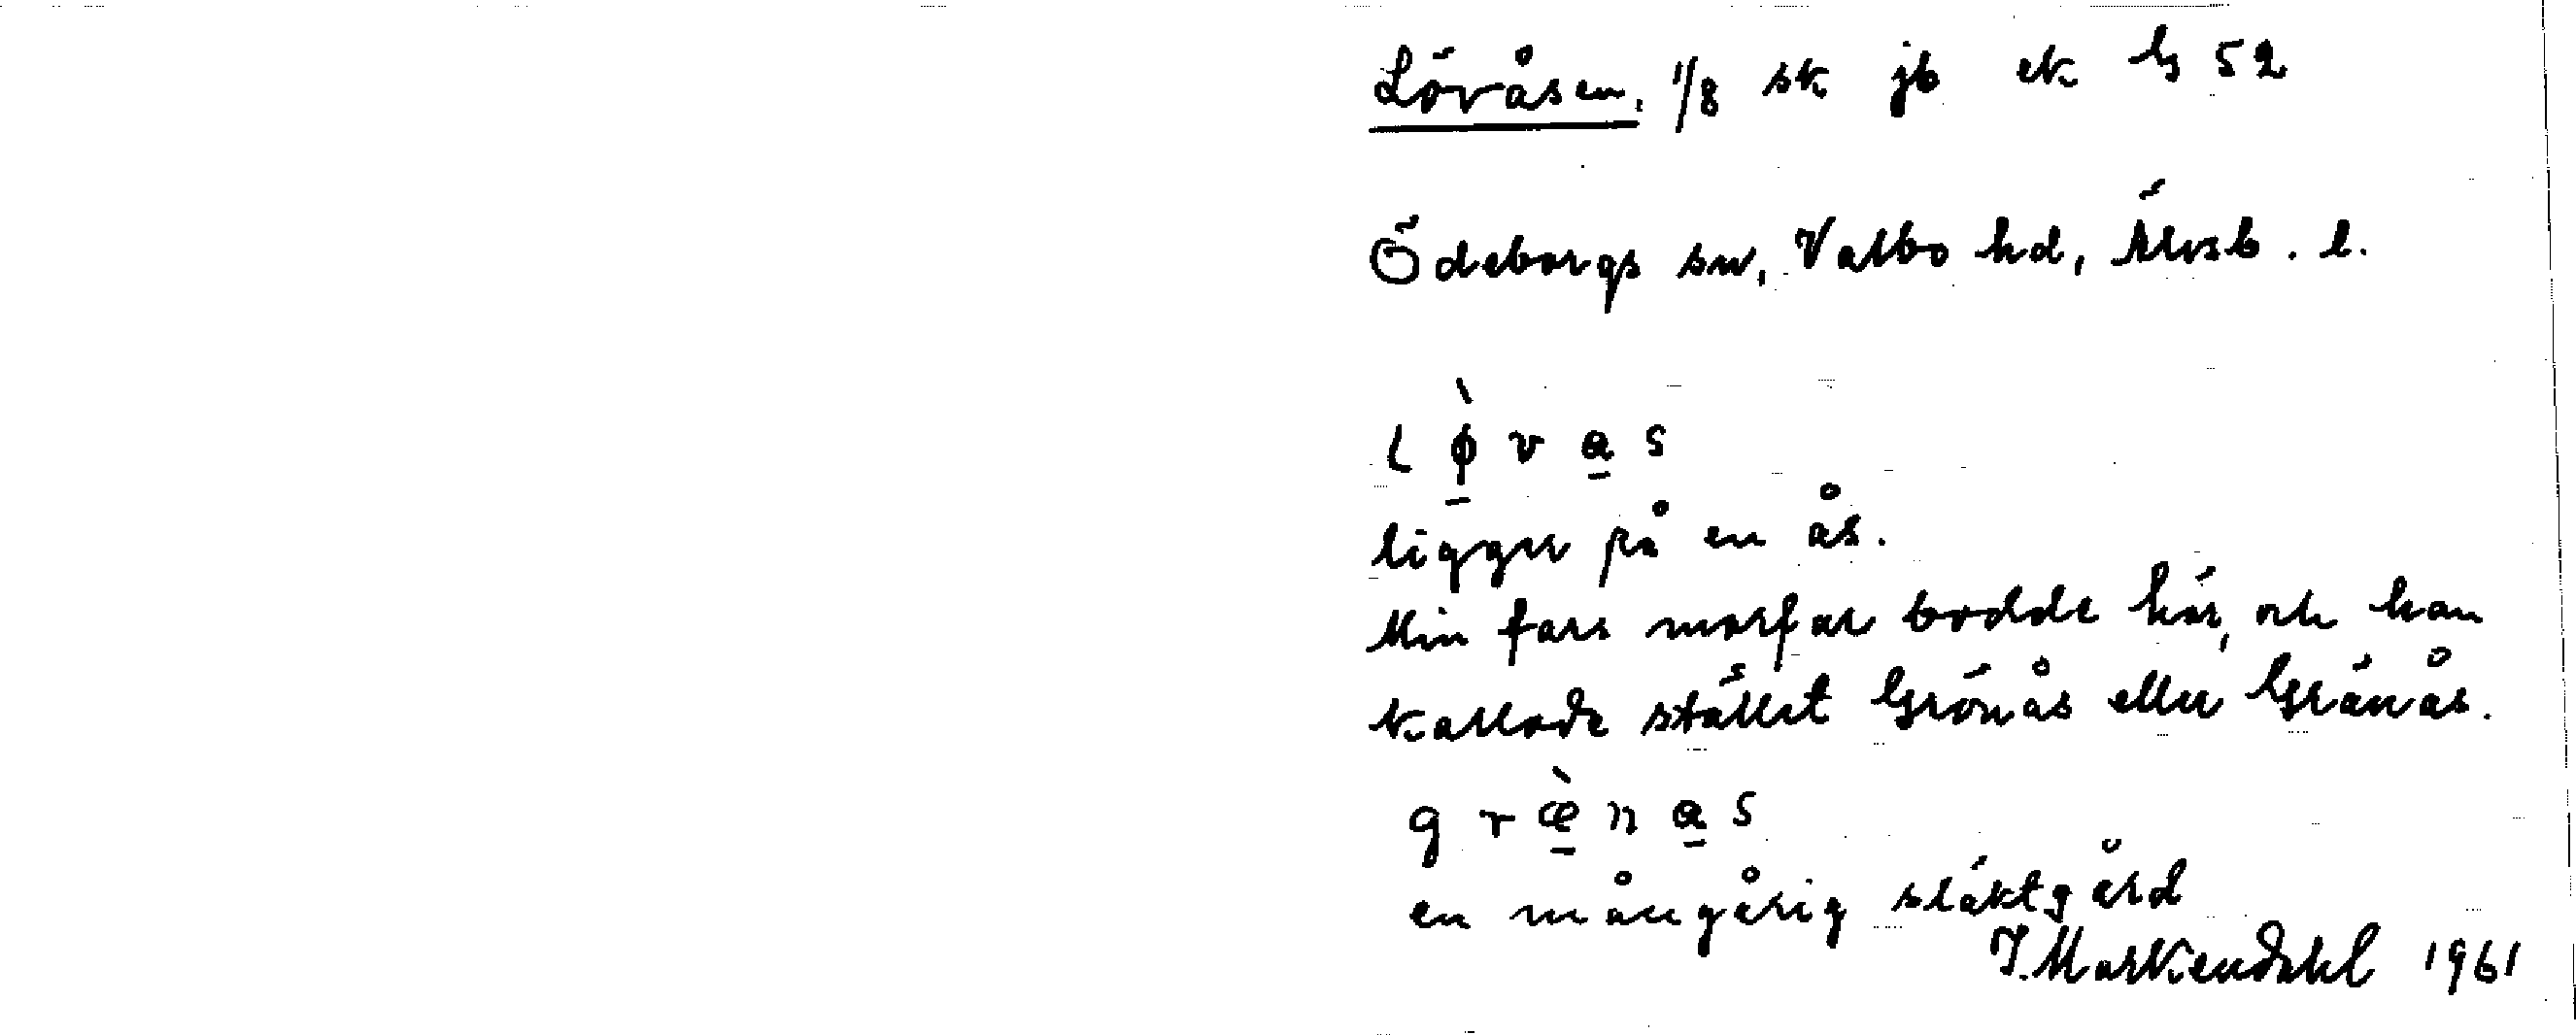 Lövåsen, 1/8 sk jb ek G 52
Ödeborgs sn, Valbo hd, Älvsb. l.
l ø̀ v a s
ligger på en ås.
Min fars morfar bodde här, och han
kallade stället Grönås eller Gränås.
g r æ̀ n a s
en mångårig släktgård
I. Markendahl 1961